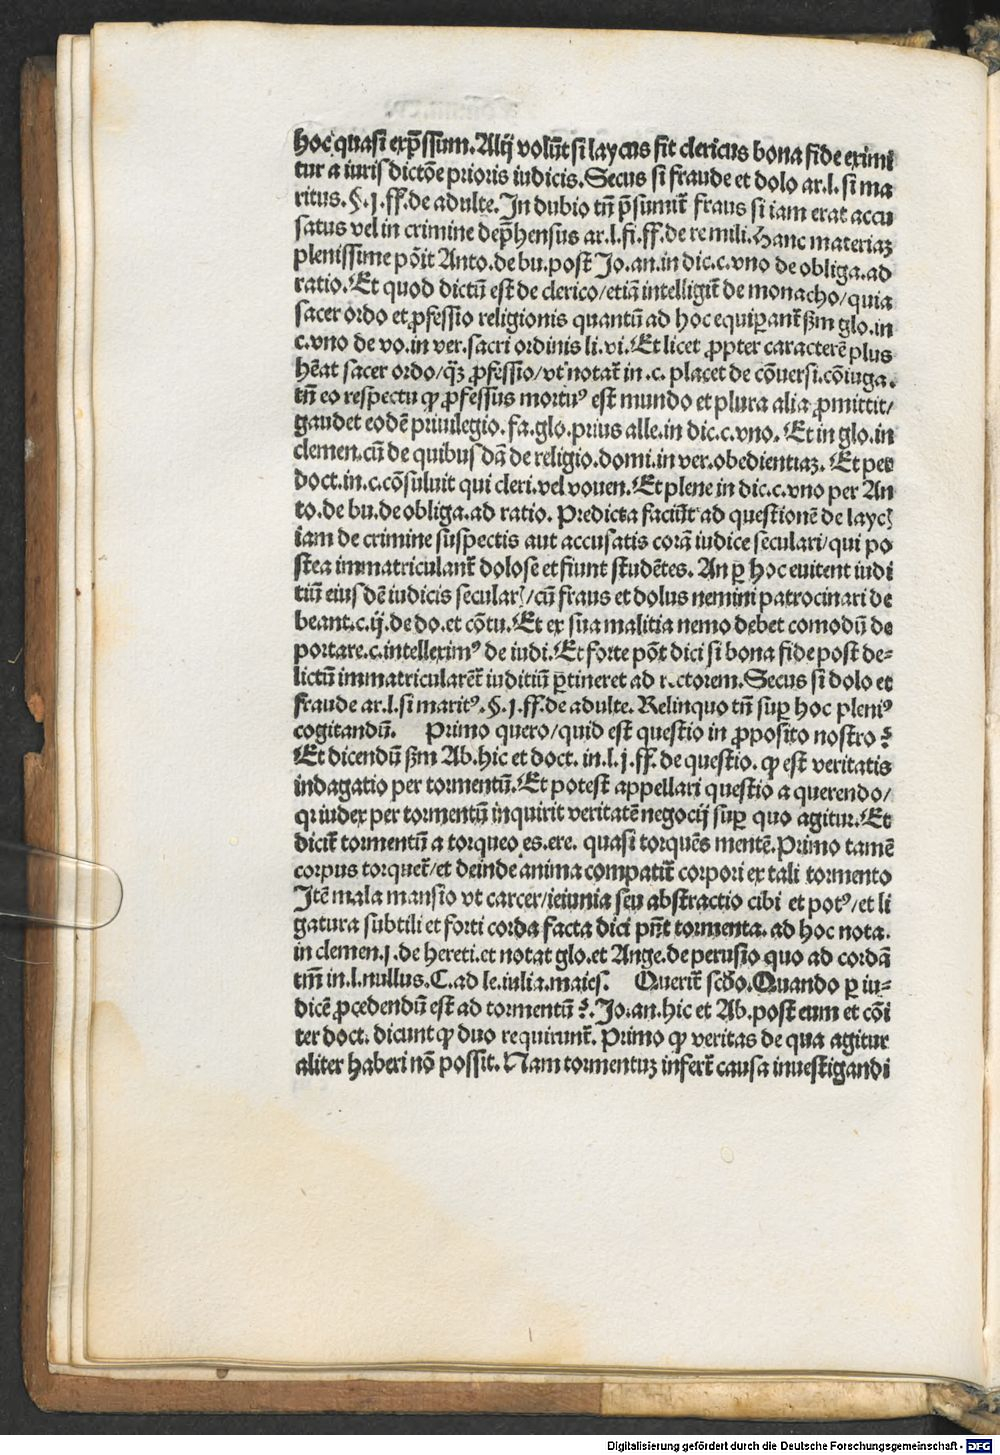 hoc quasi exp̄ssum. Alij volūt si laycus fit clericus bona fide eximi
tur a iurisdictōe prioris iudicis. Secus si fraude et dolo ar. l. si ma
ritus. §. j. ff. de adulte. In dubio tn̄ p̄sumit̄ fraus si iam erat accu
satus vel in crimine dep̄hensus ar. l. fi. ff. de re mili. Hanc materiaꝫ
plenissime pōit Anto. de bu. post Jo. an. in dic. c. vno de obliga. ad
ratio. Et quod dictū est de clerico / etiā intelligit̄ de monacho / quia
sacer ordo et ꝓfessio religionis quantū ad hoc equiꝑant̄ ẜm glo. in
c. vno de vo. in ver. sacri ordinis li. vi. Et licet ꝓpter caracterē plus
hēat sacer ordo / q̄ꝫ ꝓfessio / vt notat̄ in .c. placet de cōuersi. cōiuga.
tn̄ eo respectu ꝙ ꝓfessus mortuꝰ est mundo et plura alia ꝓmittit /
gaudet eodē priuilegio. fa. glo. prius alle. in dic. c. vno. Et in glo. in
clemen. cū de quibusdā de religio. domi. in ver. obedientiaꝫ. Et per
doct. in .c. cōsuluit qui cleri. vel vouen. Et plene in dic. c. vno per An
to. de bu. de obliga. ad ratio. Predicta faciūt ad questionē de laycꝭ
iam de crimine suspectis aut accusatis corā iudice seculari / qui po
stea immatriculant̄ dolose et fiunt studētes. An ꝑ hoc euitent iudi
tiū eiusdē iudicis secularꝭ / cū fraus et dolus nemini patrocinari de
beant. c. ij. de do. et cōtu. Et ex sua malitia nemo debet comodū de
portare. c. intelleximꝰ de iudi. Et forte pōt dici si bona fide post de⸗
lictū immatricularēt̄ iuditiū ꝑtineret ad rectorem. Secus si dolo et
fraude ar. l. si maritꝰ. §. j. ff. de adulte. Relinquo tn̄ suꝑ hoc pleniꝰ
cogitandū.    Primo quero / quid est questio in ꝓposito nostro ?
Et dicendū ẜm Ab. hic et doct. in. l. j. ff. de questio. ꝙ est veritatis
indagatio per tormentū. Et potest appellari questio a querendo /
qꝛ iudex per tormentū inquirit veritatē negocij suꝑ quo agitur. Et
dicit̄ tormentū a torqueo es. ere. quasi torquēs mentē. Primo tamē
corpus torquet̄ / et deinde anima compatit̄ corpori ex tali tormento
Itē mala mansio vt carcer / ieiunia seu abstractio cibi et potꝰ / et li
gatura subtili et forti corda facta dici pn̄t tormenta. ad hoc nota.
in clemen. j. de hereti. et notat glo. et Ange. de perusio quo ad cordā
tm̄ in. l. nullus. C. ad le. iulia. maies.    Querit̄ scd̄o. Quando ꝑ iu⸗
dicē ꝓcedendū est ad tormentū ?. Jo. an. hic et Ab. post eum et cōi
ter doct. dicunt ꝙ duo requirunt̄. Primo ꝙ veritas de qua agitur
aliter haberi nō possit. Nam tormentuꝫ infert̄ causa inuestigandi
Digitalisierung gefördert durch die Deutsche Forschungsgemeinschaft - DFG